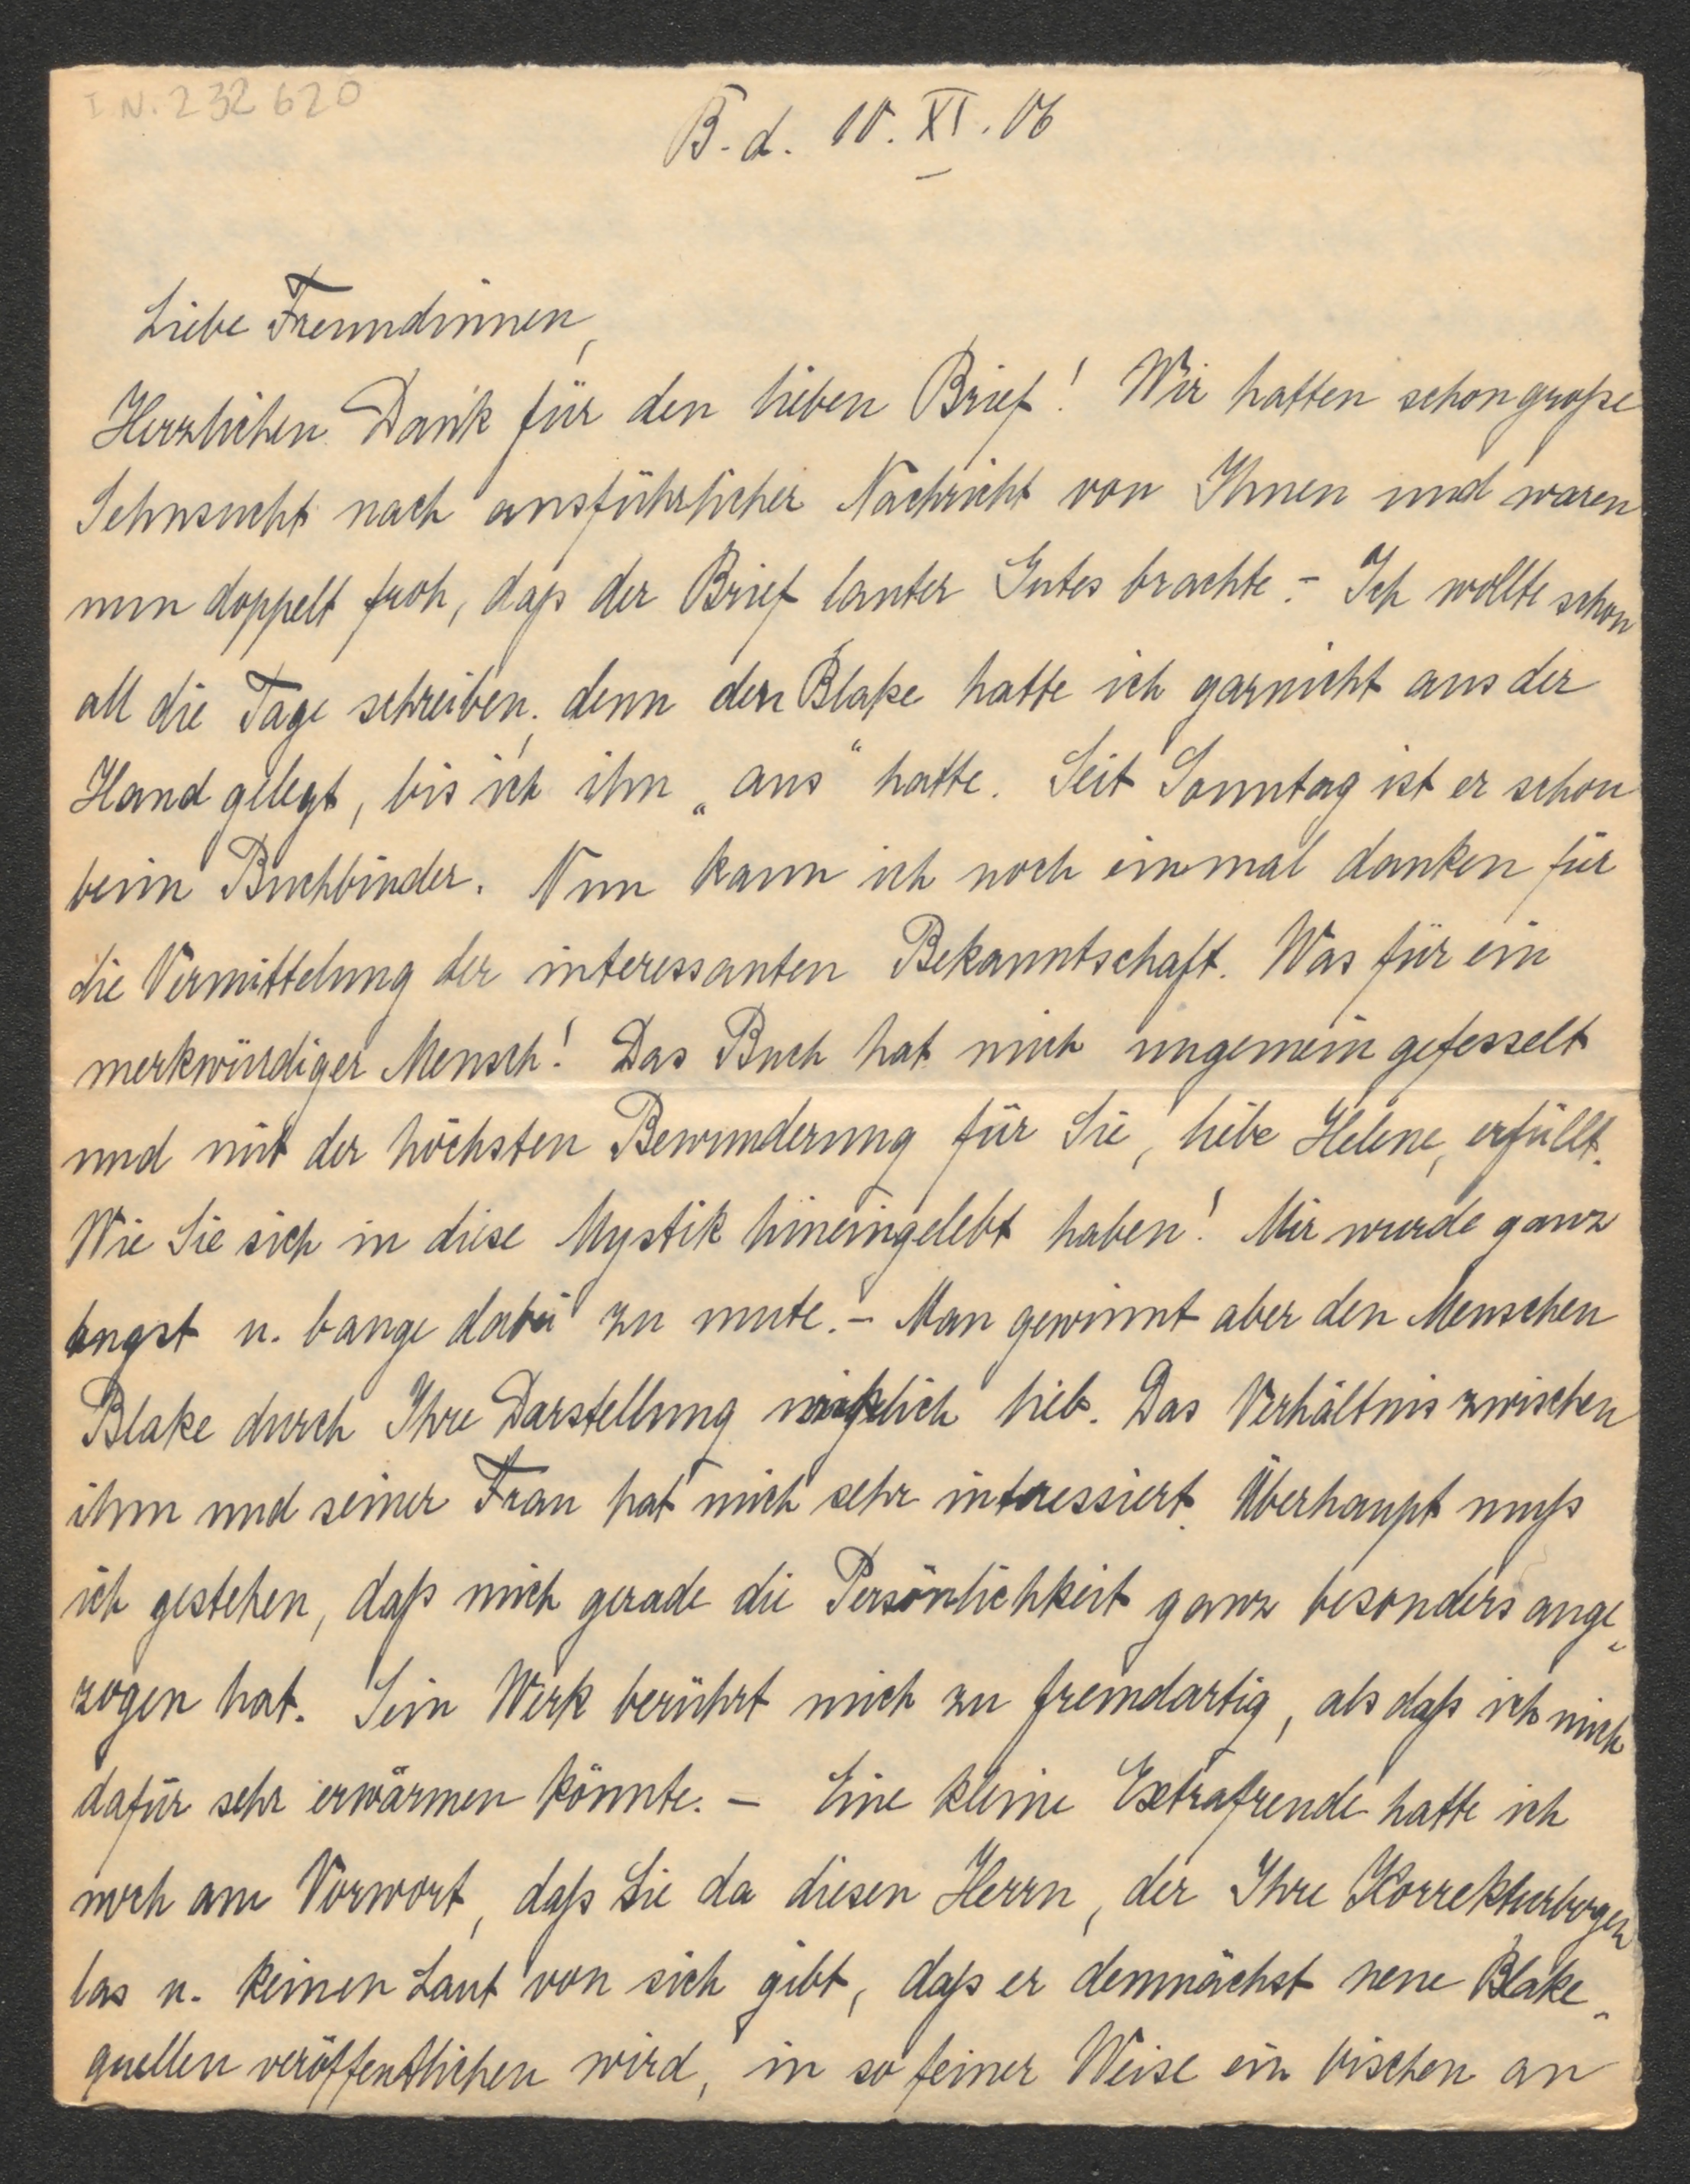 I N. 232 620
B. d. 10. XI. 06
Liebe Freundinnen,
Herzlichen Dank für den lieben Brief! Wir hatten schon große
Sehnsucht nach ausführlicher Nachricht von Ihnen und waren
nun doppelt froh, daß der Brief lauter Gutes brachte. – Ich wollte schon
all die Tage schreiben, denn den Blake hatte ich garnicht aus der
Hand gelegt, bis ich ihn „aus“ hatte. Seit Sonntag ist er schon
beim Buchbinder. Nun kann ich noch einmal danken für
die Vermittelung der interessanten Bekanntschaft. Was für ein
merkwürdiger Mensch! Das Buch hat mich ungemein gefesselt
und mit der höchsten Bewunderung für Sie, liebe Helene, erfüllt.
Wie Sie sich in diese Mystik hineingelebt haben! Mir wurde ganz
angst u. bange dabei zu mute. – Man gewinnt aber den Menschen
Blake durch Ihre Darstellung wirklich lieb. Das Verhältnis zwischen
ihm und seiner Frau hat mich sehr interessiert. Überhaupt muß
ich gestehen, daß mich gerade die Persönlichkeit ganz besonders ange-
zogen hat. Sein Werk berührt mich zu fremdartig, als daß ich mich
dafür sehr erwärmen könnte. – Eine kleine Extrafreude hatte ich
noch am Vorwort, daß Sie da diesen Herrn, der Ihre Korrekturbogen
las u. keinen Laut von sich gibt, daß er demnächst neue Blake-
quellen veröffentlichen wird, in so feiner Weise ein bischen an